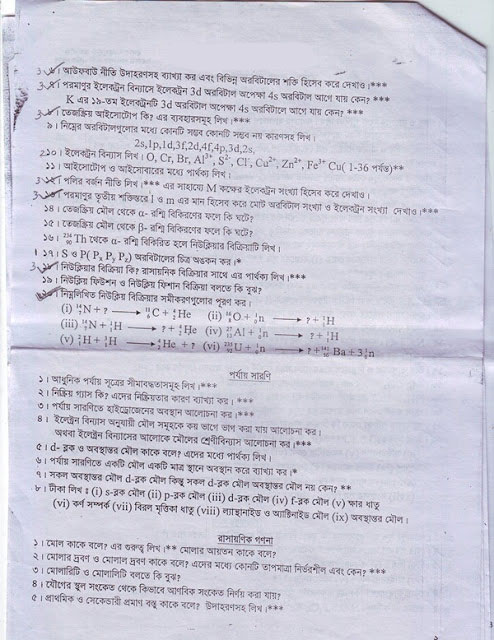 ৬। আউফবাউ নীতি উদাহরণসহ ব্যাখ্যা কর এবং বিভিন্ন অরবিটালের শক্তি হিসেব করে দেখাও।***
৭। পরমাণুর ইলেকট্রন বিন্যাসে ইলেকট্রন 3d অরবিটাল অপেক্ষা 4s অরবিটাল আগে যায় কেন? ***
K এর ১৯-তম ইলেকট্রনটি 3d অরবিটাল অপেক্ষা 4s অরবিটালে আগে যায় কেন? ***
৮। তেজস্ক্রিয় আইসোটোপ কি? এর ব্যবহারসমূহ লিখ।***
৯। নিম্নের অরবিটালগুলোর মধ্যে কোনটি সম্ভব কোনটি সম্ভব নয় কারণসহ লিখ।
2s,1p,1d,3f,2d,4f,4p,3d,2s,
১০। ইলেকট্রন বিন্যাস লিখ। O, Cr, Br, Al³⁺, S²⁻, Cl⁻, Cu²⁺, Zn²⁺, Fe³⁺ Cu( 1-36 পর্যন্ত)**
১১। আইসোটোপ ও আইসোবারের মধ্যে পার্থক্য লিখ।
১২। পলির বর্জন নীতি লিখ।*** এর সাহায্যে M কক্ষের ইলেকট্রন সংখ্যা হিসেব করে দেখাও।
১৩। পরমাণুর তৃতীয় শক্তিস্তরে l ও m এর মান হিসেব করে মোট অরবিটাল সংখ্যা ও ইলেকট্রন সংখ্যা দেখাও।***
১৪। তেজস্ক্রিয় মৌল থেকে α- রশ্মি বিকিরণের ফলে কি ঘটে?
১৫। তেজস্ক্রিয় মৌল থেকে β- রশ্মি বিকিরণের ফলে কি ঘটে?
১৬। ²³⁴₉₀Th থেকে α- রশ্মি বিকিরিত হলে নিউক্লিয়ার বিক্রিয়াটি লিখ।
১৭। S ও P( Pₓ Pᵧ P₂) অরবিটালের চিত্র অঙ্কন কর।*
১৮। নিউক্লিয়ার বিক্রিয়া কি? রাসায়নিক বিক্রিয়ার সাথে এর পার্থক্য লিখ।***
১৯। নিউক্লিয় ফিউশন ও নিউক্লিয় ফিশান বিক্রিয়া বলতে কি বুঝ?
২০। নিম্নলিখিত নিউক্লিয় বিক্রিয়ার সমীকরণগুলোর পূরণ কর।
(i) ¹⁴₇N + ? ⟶ ¹⁴₆C + ⁴₂He (ii) ¹⁶₈O + ¹₀n ⟶ ? + ¹₁H
(iii) ¹⁴₇N + ¹₁H ⟶ ? + ⁴₂He (iv) ²⁷₁₃Al + ¹₀n ⟶ ? + ¹₁H
(v) ²₁H + ³₁H ⟶ ⁴₂He + ? (vi) ²³⁵₉₂U + ¹₀n ⟶ ? + ¹⁴¹₅₆Ba + 3¹₀n
পর্যায় সারণি
১। আধুনিক পর্যায় সূত্রের সীমাবদ্ধতাসমূহ লিখ।***
২। নিষ্ক্রিয় গ্যাস কি? এদের নিষ্ক্রিয়তার কারণ ব্যাখ্যা কর। ***
৩। পর্যায় সারণিতে হাইড্রোজেনের অবস্থান আলোচনা কর।***
৪। ইলেক্ট্রন বিন্যাস অনুযায়ী মৌল সমূহকে কয় ভাগে ভাগ করা যায় আলোচনা কর।
অথবা ইলেক্ট্রন বিন্যাসের আলোকে মৌলের শ্রেণীবিন্যাস আলোচনা কর।***
৫। d- ব্লক ও অবস্থান্তর মৌল কাকে বলে? এদের মধ্যে পার্থক্য লিখ।
৬। পর্যায় সারণিতে একটি মৌল একটি মাত্র স্থানে অবস্থান করে ব্যাখ্যা কর।*
৭। সকল অবস্থান্তর মৌল d-ব্লক মৌল কিন্তু সকল d-ব্লক মৌল অবস্থান্তর মৌল নয় কেন? **
৮। টীকা লিখ ঃ (i) s-ব্লক মৌল (ii) p-ব্লক মৌল (iii) d-ব্লক মৌল (iv) f-ব্লক মৌল (v) ক্ষার ধাতু
(vi) কর্ণ সম্পর্ক (vii) বিরল মৃত্তিকা ধাতু (viii) ল্যান্থানাইড ও অ্যাক্টিনাইড মৌল (ix) অবস্থান্তর মৌল।
রাসায়ণিক গণনা
১। মোল কাকে বলে? এর গুরুত্ব লিখ।** মোলার আয়তন কাকে বলে?
২। মোলার দ্রবণ ও মোলাল দ্রবণ কাকে বলে? এদের মধ্যে কোনটি তাপমাত্রা নির্ভরশীল এবং কেন? ***
৩। মোলারিটি ও মোলালিটি বলতে কি বুঝ?
৪। যৌগের স্থূল সংকেত থেকে কিভাবে আণবিক সংকেত নির্ণয় করা যায়?
৫। প্রাথমিক ও সেকেন্ডারী প্রমাণ বস্তু কাকে বলে? উদাহরণসহ লিখ।***